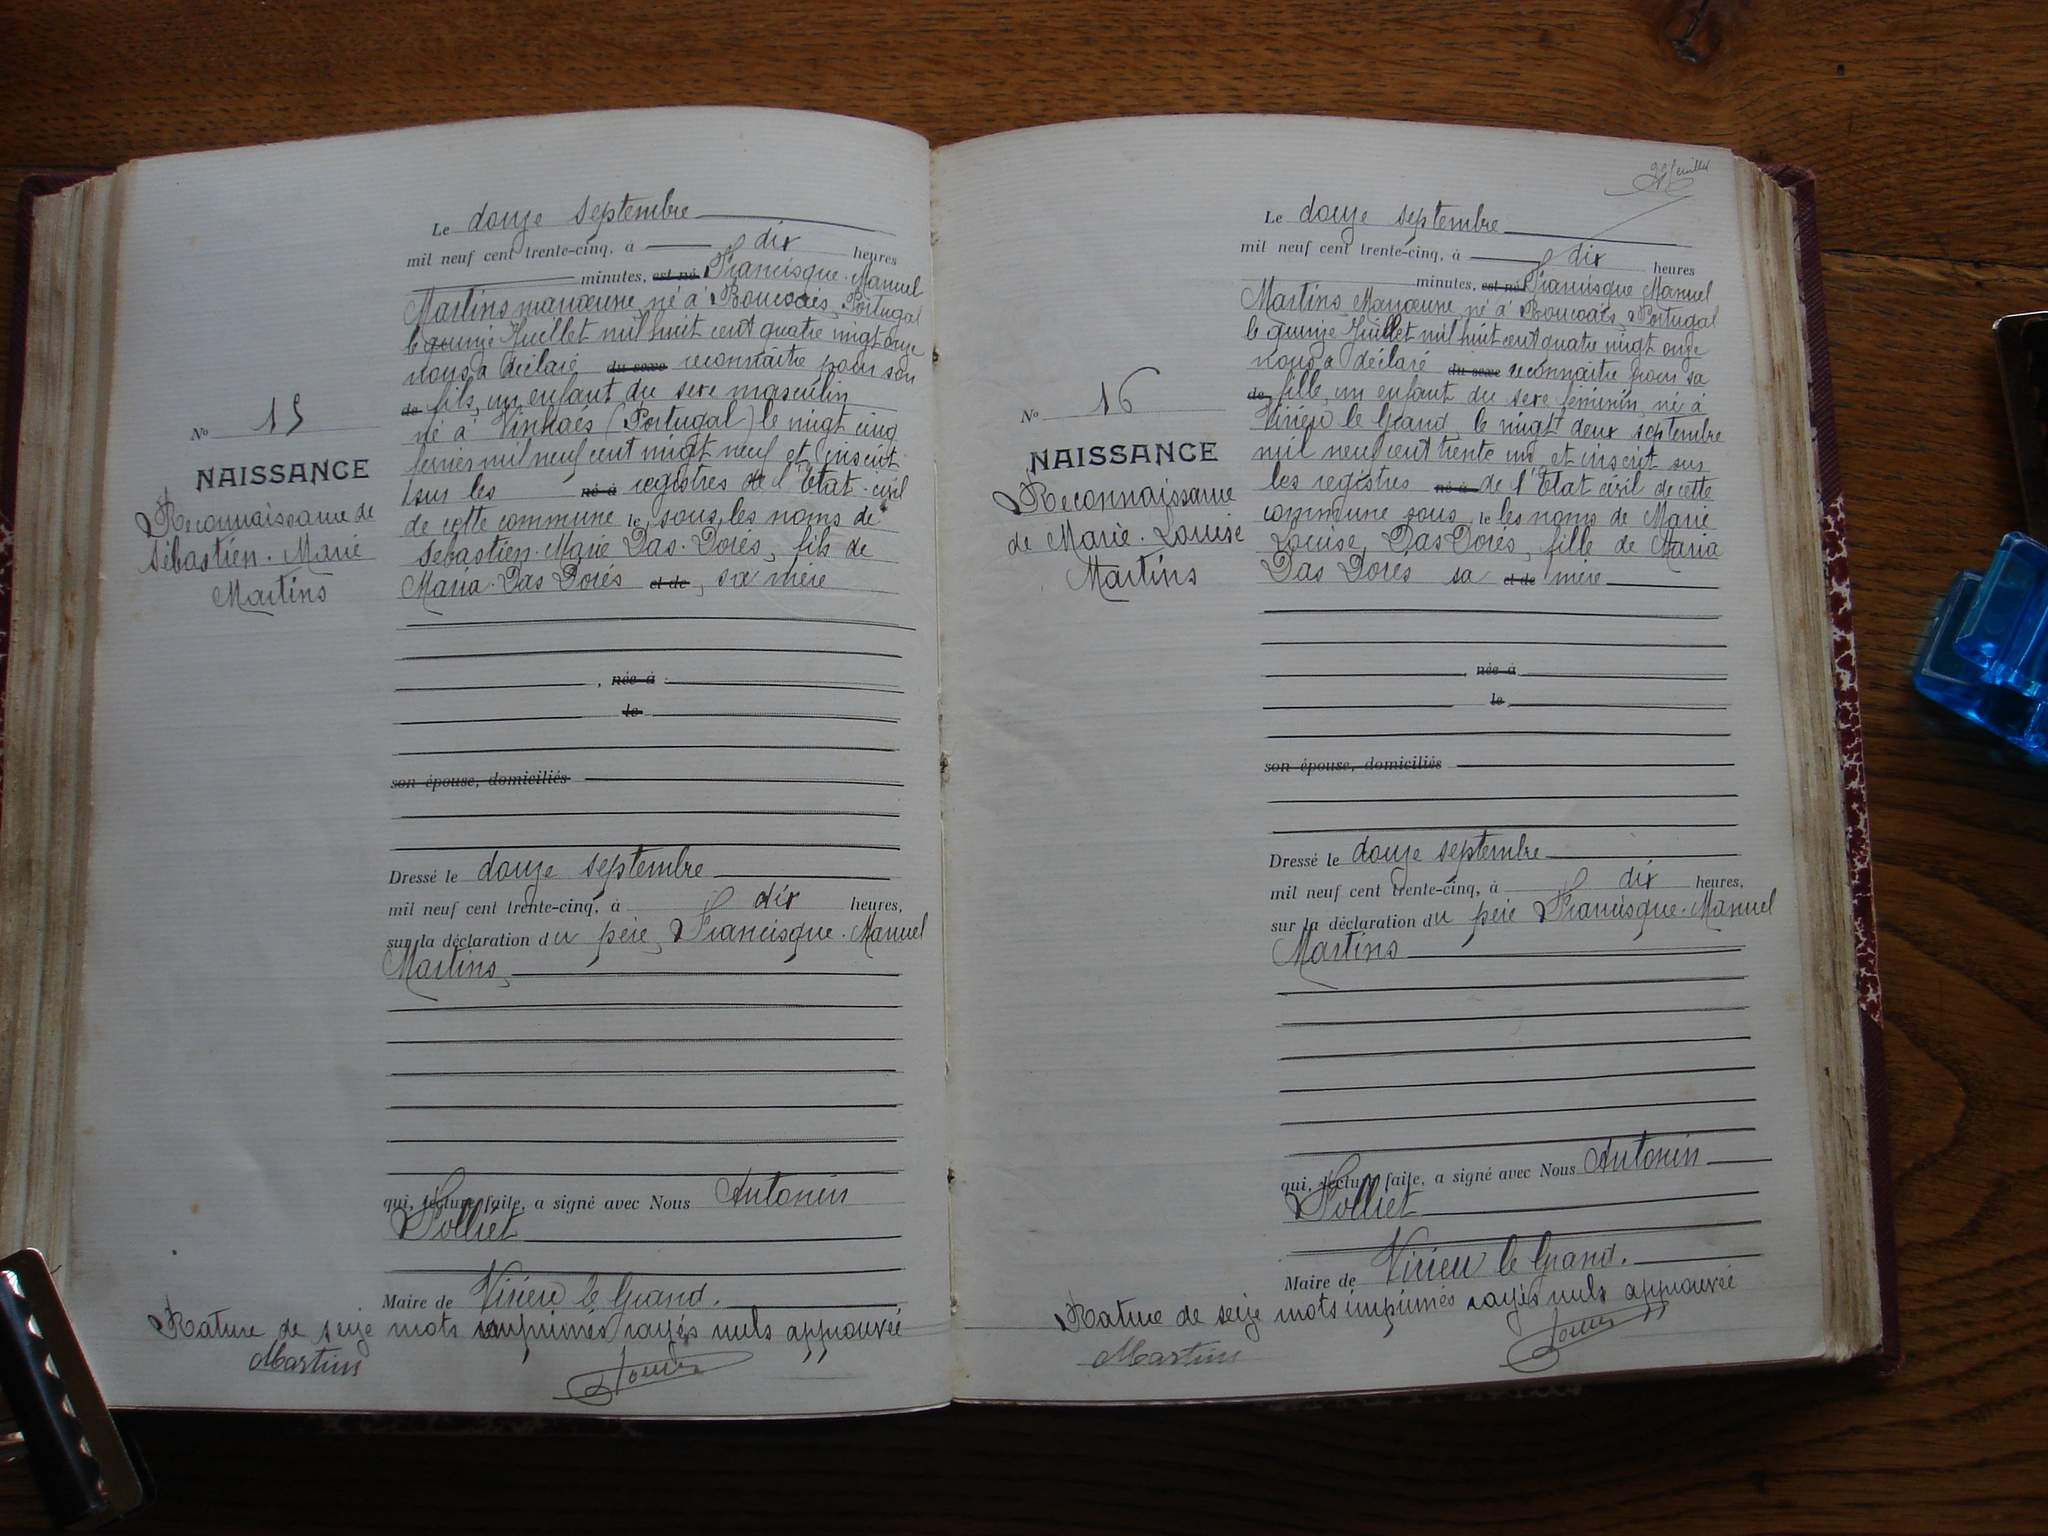 Le douze septembre
mil neuf cent trente-cinq, à dix heures
minutes, est né Francisque. Manuel
Martins manœuvre, né à Boucoais, Portugal
le quinze Juillet mil huit cent quatre vingt onze
nous a déclaré du sexe reconnaître pour son
de fils, un enfant du sexe masculin
né à Vinhaés (Portugal) le vingt cinq
février mil neuf cent vingt neuf et inscrit
sur les né à registres de l'Etat-civil
de cette commune le, sous les noms de
Sébastien. Marie Das. Dorés, fils de
Maria. Das Dorés et de, sa mère
N° 15
NAISSANCE
Reconnaissance de
Sébastien. Marie
Martins
, née à
le
son épouse, domiciliés
Dressé le douze septembre
mil neuf cent trente-cinq, à dix heures,
sur la déclaration du père, Francisque. Manuel
Martins,
qui, lecture faite, a signé avec Nous Antonin
Folliet
Maire de Virieu le Grand.
Rature de seize mots imprimés rayés nuls approuvée
Martins
22e feuillet
Le douze septembre
mil neuf cent trente-cinq, à dix heures
minutes, est né Francisque Manuel
Martins, Manœuvre né à Boucoaès, Portugal
le quinze Juillet mil huit cent quatre vingt onze
nous a déclaré du sexe reconnaître pour sa
de fille, un enfant du sexe féminin, né à
Virieu le Grand, le vingt deux septembre
mil neuf cent trente un, et inscrit sur
les registres né à de l'Etat civil de cette
commune sous le les noms de Marie
Louise, Das Dorés, fille de Maria
Das Dores sa et de mère
N° 16
NAISSANCE
Reconnaissance
de Marie. Louise
Martins
, née à
le
son épouse, domiciliés
Dressé le douze septembre
mil neuf cent trente-cinq, à dix heures,
sur la déclaration du père Francisque. Manuel
Martins
qui, lecture faite, a signé avec Nous Antonin
Folliet
Maire de Virieu le Grand.
Rature de seize mots imprimés rayés nuls approuvée
Martins